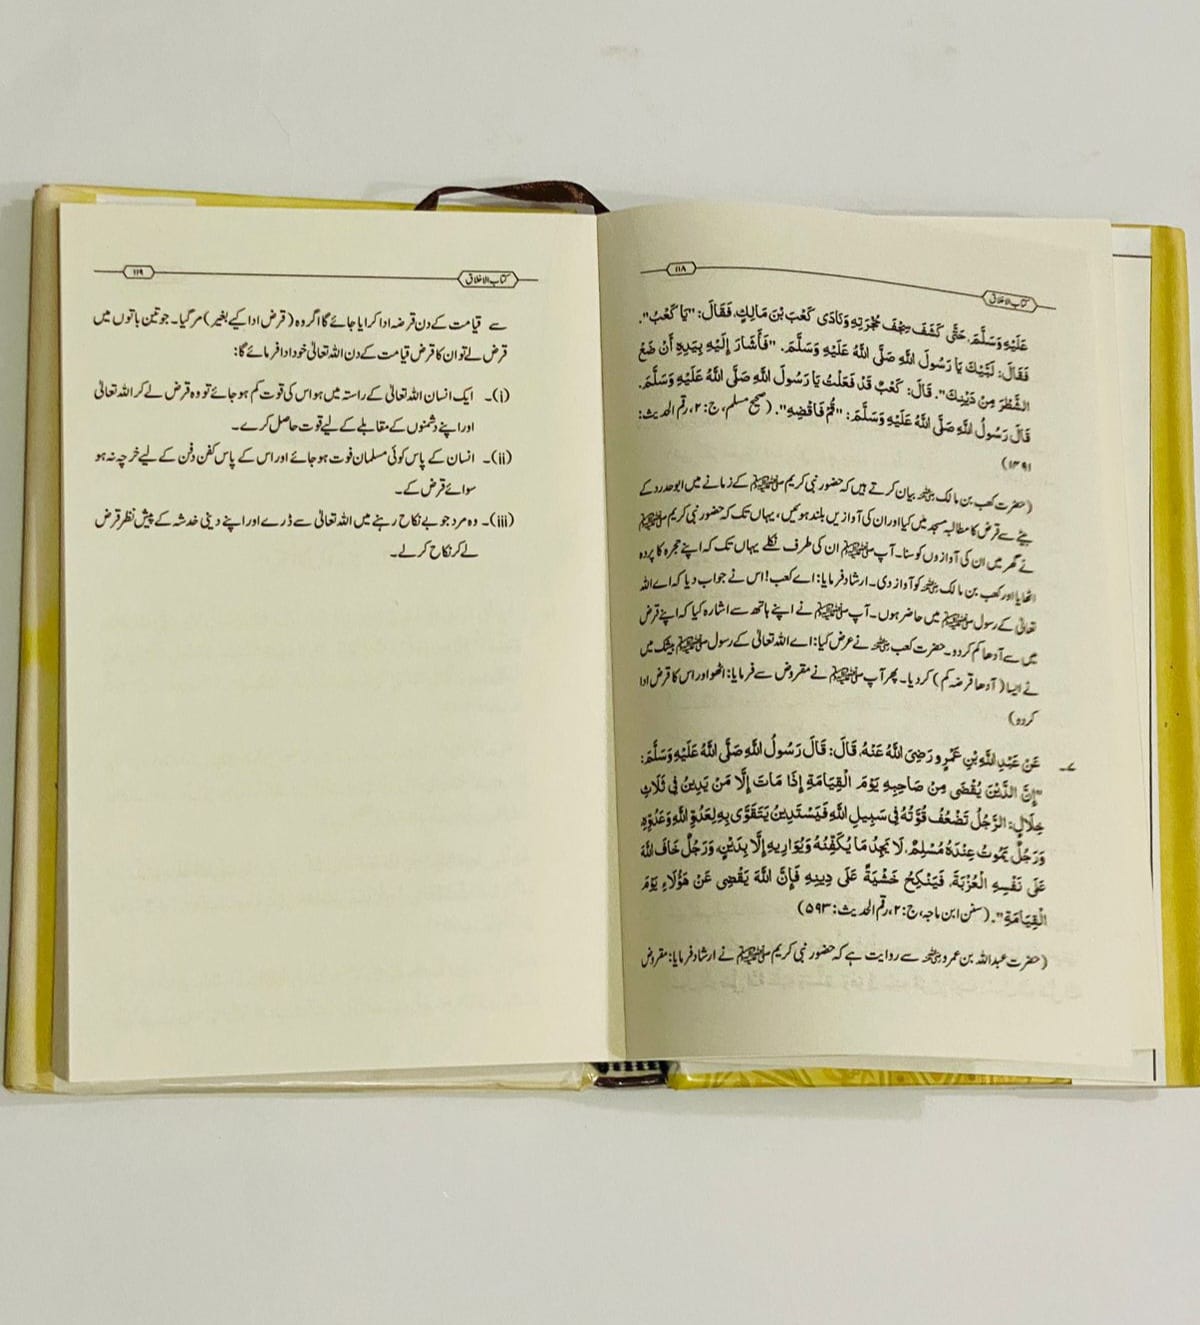 کتاب الاخلاق
۱۱۸
عَلَيْهِ وَسَلَّمَ، حَتّٰى كَشَفَ سِجْفَ حُجْرَتِهِ وَنَادَى كَعْبَ بْنَ مَالِكٍ، فَقَالَ: "يَا كَعْبُ".
فَقَالَ: لَبَّيْكَ يَا رَسُولَ اللهِ صَلَّى اللهُ عَلَيْهِ وَسَلَّمَ. "فَأَشَارَ إِلَيْهِ بِيَدِهِ أَنْ ضَعْ
الشَّطْرَ مِنْ دَيْنِكَ". قَالَ: كَعْبٌ قَدْ فَعَلْتُ يَا رَسُولَ اللهِ صَلَّى اللهُ عَلَيْهِ وَسَلَّمَ.
قَالَ رَسُولُ اللهِ صَلَّى اللهُ عَلَيْهِ وَسَلَّمَ: "قُمْ فَاقْضِهِ". (صحیح مسلم، ج: ۲، رقم الحدیث:
۱۴۹۱)
(حضرت کعب بن مالک رضی اللہ عنہ بیان کرتے ہیں کہ حضور نبی کریم ﷺ کے زمانے میں ابو حدرد کے
بیٹے سے قرض کا مطالبہ مسجد میں کیا اور ان کی آوازیں بلند ہوئیں، یہاں تک کہ حضور نبی کریم ﷺ
نے گھر میں ان کی آوازوں کو سنا۔ آپ ﷺ ان کی طرف نکلے یہاں تک کہ اپنے حجرہ کا پردہ
اٹھایا اور کعب بن مالک رضی اللہ عنہ کو آواز دی۔ ارشاد فرمایا: اے کعب! اس نے جواب دیا کہ اے اللہ
تعالیٰ کے رسول ﷺ میں حاضر ہوں۔ آپ ﷺ نے اپنے ہاتھ سے اشارہ کیا کہ اپنے قرض
میں سے آدھا کم کر دو۔ حضرت کعب رضی اللہ عنہ نے عرض کیا: اے اللہ تعالیٰ کے رسول ﷺ بیشک میں
نے ایسا (آدھا قرضہ کم) کر دیا۔ پھر آپ ﷺ نے مقروض سے فرمایا: اٹھو اور اس کا قرض ادا
کردو)
۷۔ عَنْ عَبْدِ اللهِ بْنِ عَمْرٍو رَضِيَ اللهُ عَنْهُ، قَالَ: قَالَ رَسُولُ اللهِ صَلَّى اللهُ عَلَيْهِ وَسَلَّمَ:
"إِنَّ الدَّيْنَ يُقْضَى مِنْ صَاحِبِهِ يَوْمَ الْقِيَامَةِ إِذَا مَاتَ إِلَّا مَنْ يَدِينُ فِي ثَلَاثِ
خِلَالٍ: الرَّجُلُ تَضْعُفُ قُوَّتُهُ فِي سَبِيلِ اللهِ فَيَسْتَدِينُ يَتَقَوَّى بِهِ لِعَدُوِّ اللهِ وَعَدُوِّهِ
وَرَجُلٌ يَمُوتُ عِنْدَهُ مُسْلِمٌ، لَا يَجِدُ مَا يُكَفِّنُهُ وَيُوَارِيهِ إِلَّا بِدَيْنٍ، وَرَجُلٌ خَافَ اللهَ
عَلَى نَفْسِهِ الْعُزْبَةَ، فَيَنْكِحُ خَشْيَةً عَلَى دِينِهِ فَإِنَّ اللهَ يَقْضِي عَنْ هَؤُلَاءِ يَوْمَ
الْقِيَامَةِ". (سنن ابن ماجہ، ج: ۲، رقم الحدیث: ۵۹۳)
(حضرت عبداللہ بن عمرو رضی اللہ عنہ سے روایت ہے کہ حضور نبی کریم ﷺ نے ارشاد فرمایا: مقروض
کتاب الاخلاق
۱۱۹
سے قیامت کے دن قرضہ ادا کرایا جائے گا اگر وہ (قرض ادا کیے بغیر) مر گیا۔ جو تین باتوں میں
قرض لے تو ان کا قرض قیامت کے دن اللہ تعالیٰ خود ادا فرمائے گا:
(i)۔ ایک انسان اللہ تعالیٰ کے راستہ میں ہو اس کی قوت کم ہو جائے تو وہ قرض لے کر اللہ تعالیٰ
اور اپنے دشمنوں کے مقابلے کے لیے قوت حاصل کرے۔
(ii)۔ انسان کے پاس کوئی مسلمان فوت ہو جائے اور اس کے پاس کفن دفن کے لیے خرچہ نہ ہو
سوائے قرض کے۔
(iii)۔ وہ مرد جو بے نکاح رہنے میں اللہ تعالیٰ سے ڈرے اور اپنے دینی خدشہ کے پیش نظر قرض
لے کر نکاح کر لے۔